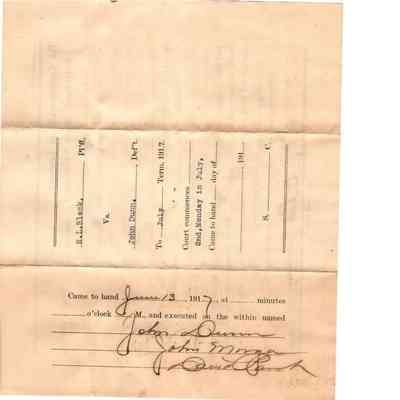 R.L.Slack, Pl'ff.
Vs.
John Dunn, Def't.
To July Term, 1917.
Court commences
2nd, Monday in July,
Came to hand day of
191
S. C.
Came to hand June 13 1917 at minutes
o'clock M., and executed on the within named
John Dunn
John Morgan